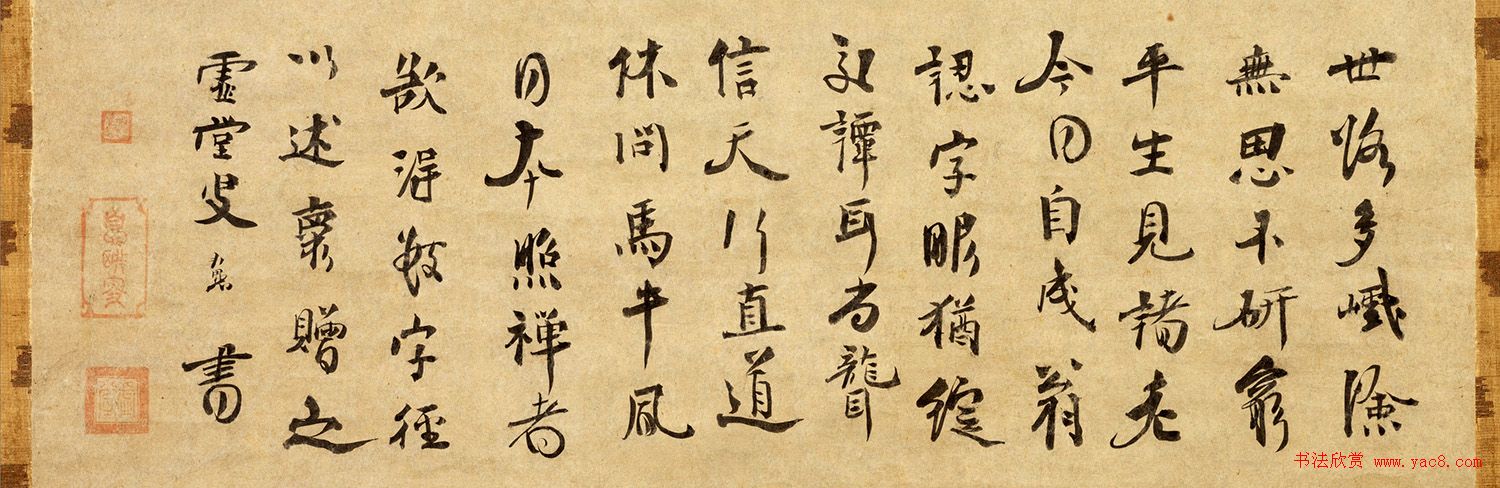 世路多巇險
無思不研窮
平生見諸老
今日自成翁
認字眼猶綻
交譚耳尚聾
信天行直道
休問馬牛風
日本照禅者
欲得數字徑
以述懷贈之
虛堂叟書
书法欣赏 www.yac8.com